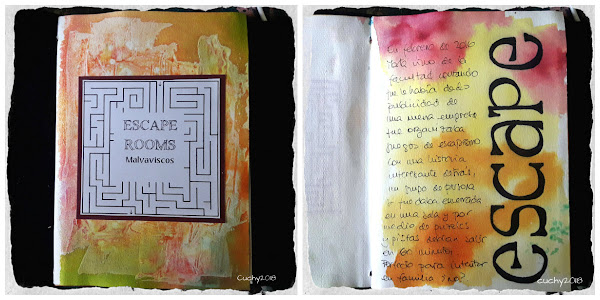 ESCAPE
ROOMS
Malvaviscos
Cuchy2018
En febrero de 2016
vino de la
facultad contando
que le había dado
publicidad de
una nueva empresa
que organizaba
juegos de escapismo
con una historia
interesante detrás,
un grupo de personas
quedaba encerrada
en una sala y por
medio de puzzles
y pistas debían salir
en 60 minutos
para intentar
en familia
escape
cuchy2018